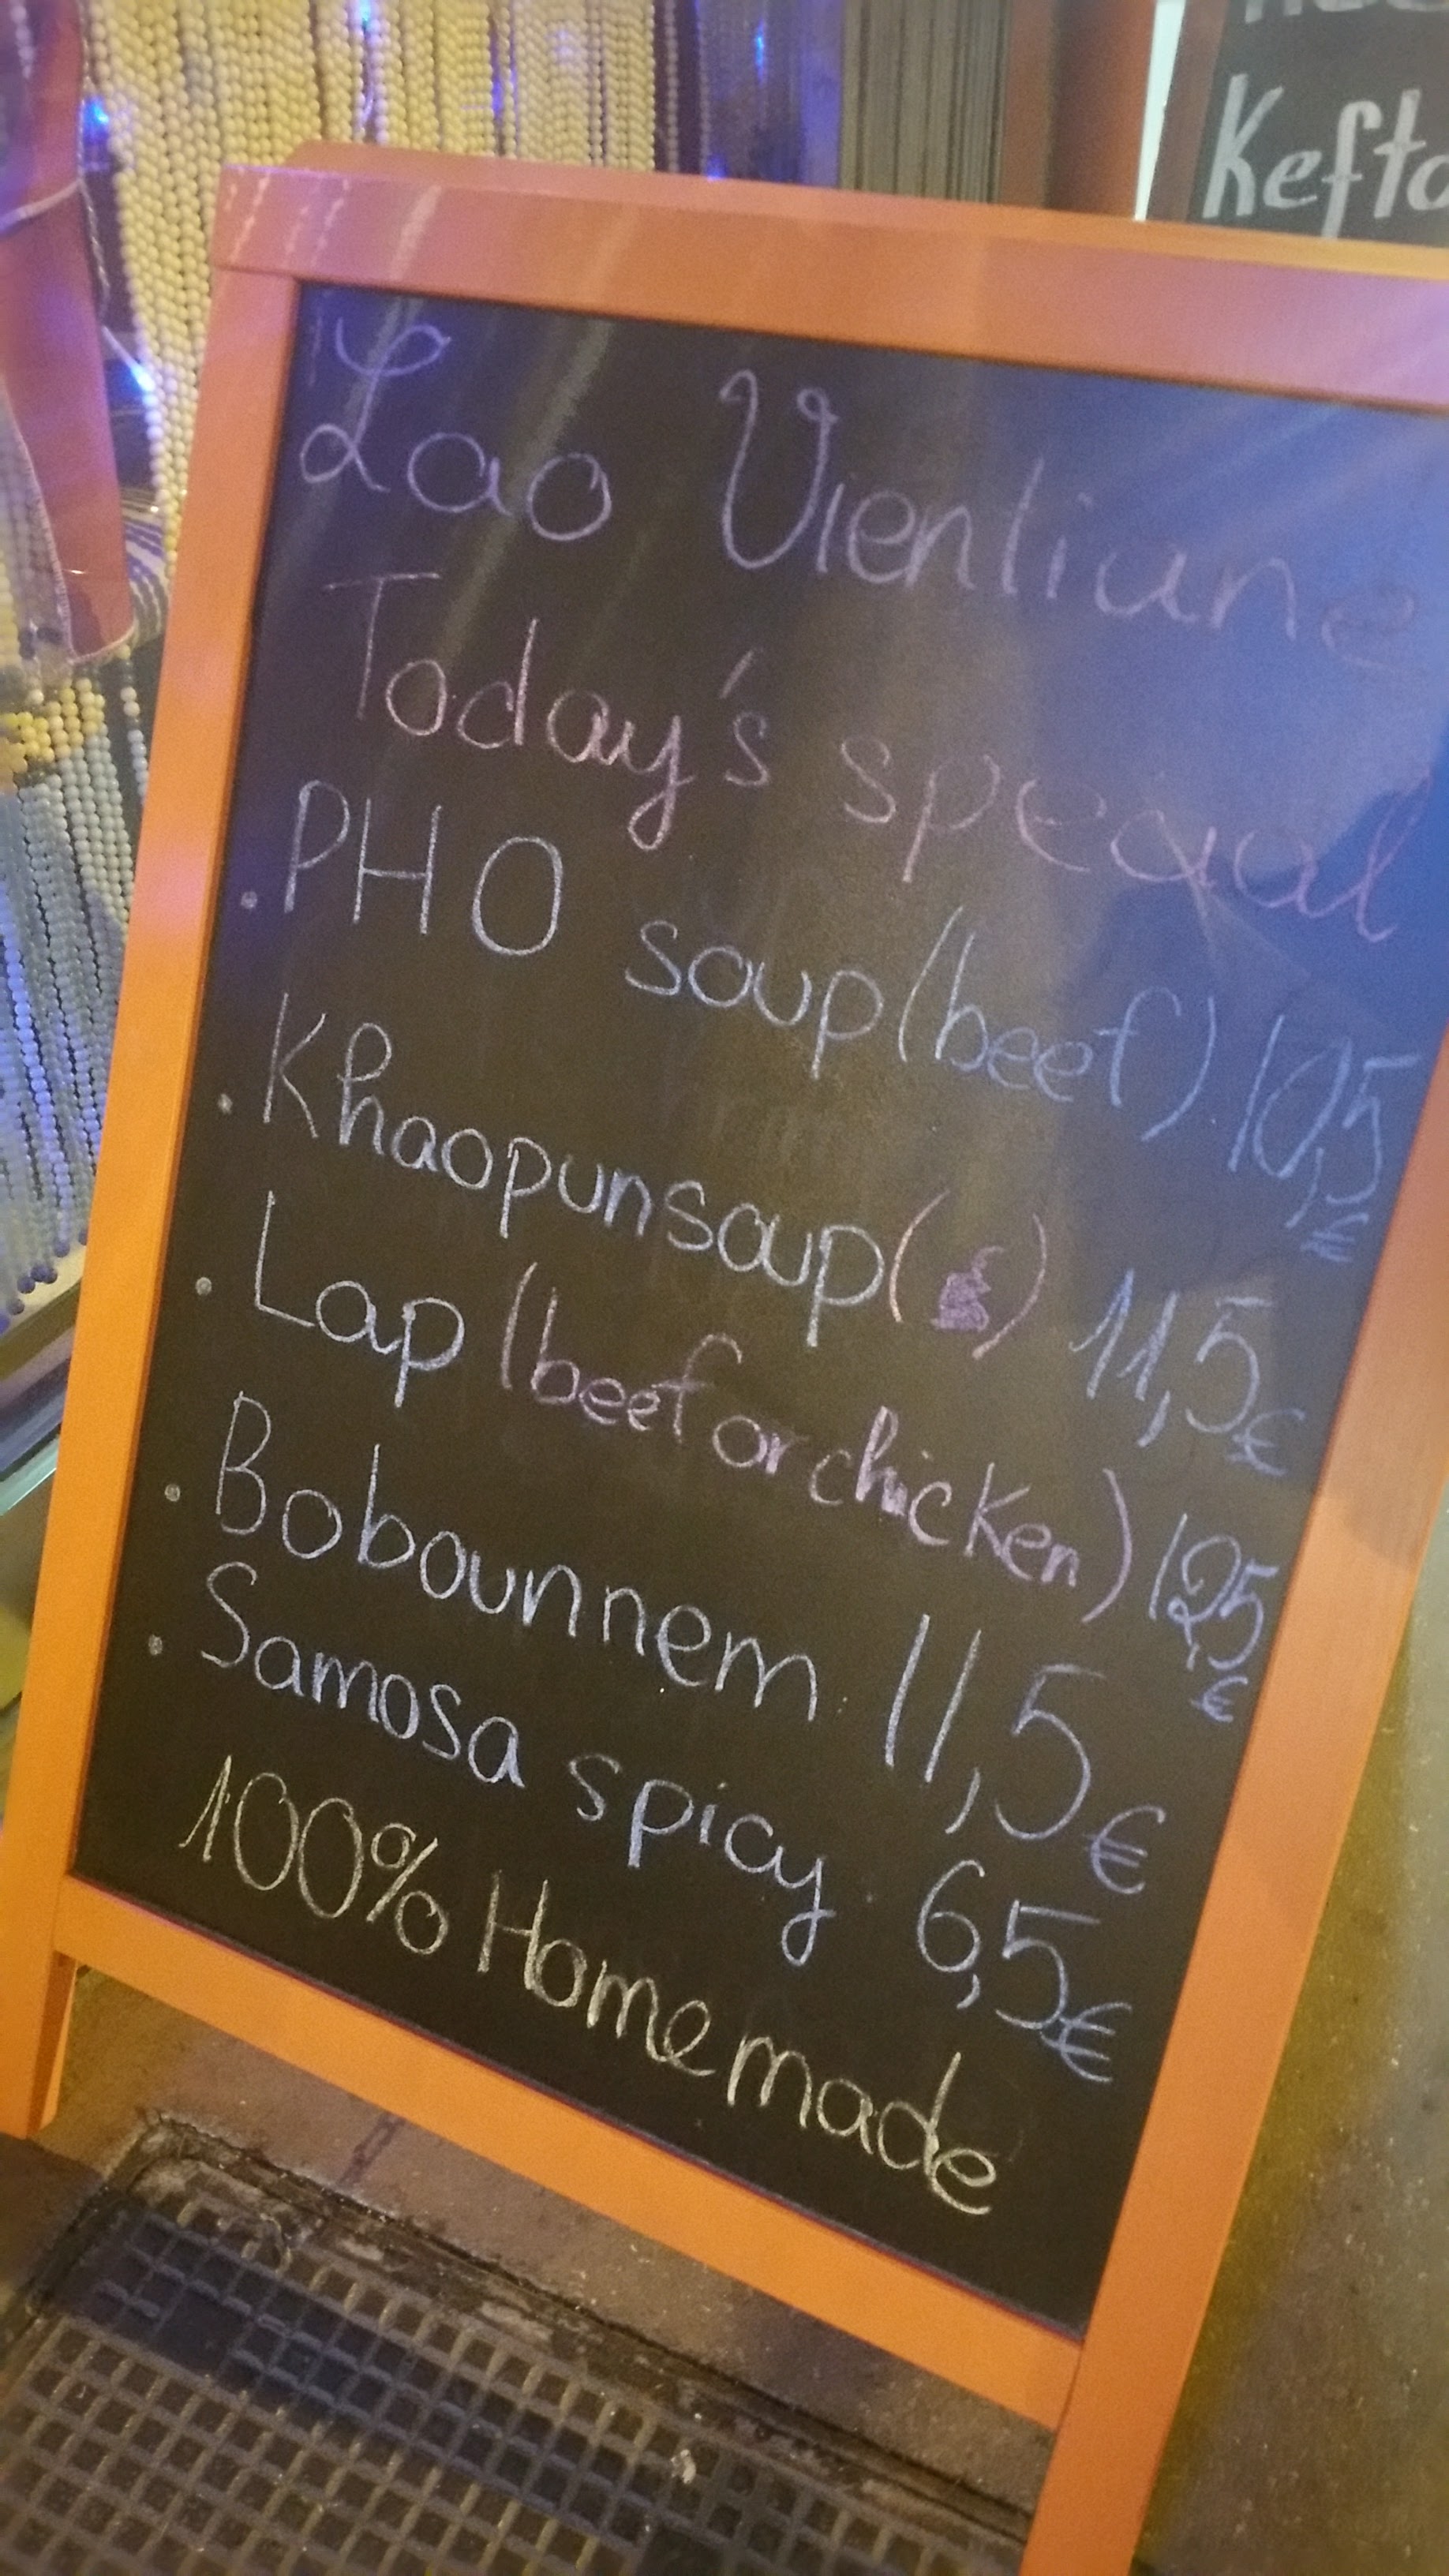 Kefta
Lao Vientiane
Today's special
. PHO soup (beef) 10,5 €
. Khaopunsoup ( ) 11,5 €
. Lap (beef or chicken) 12,5 €
. Bobounnem 11,5 €
. Samosa spicy 6,5 €
100% Homemade